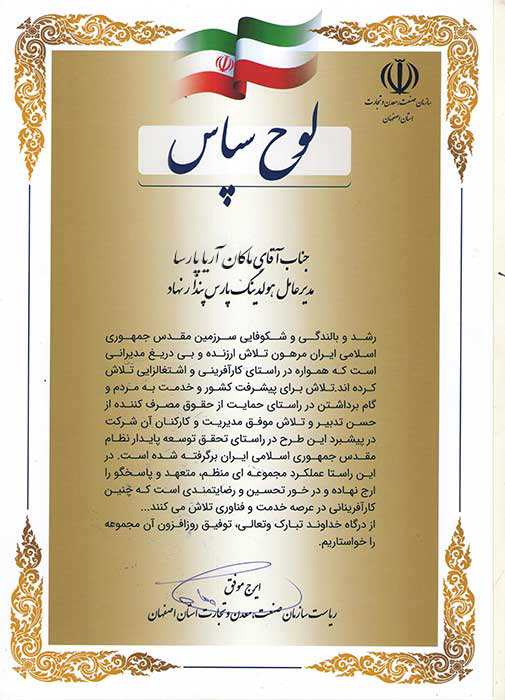 سازمان صنعت، معدن و تجارت
استان اصفهان
لوح سپاس
جناب آقای ماکان آریا پارسا
مدیرعامل هولدینگ پارس پندار نهاد
رشد و بالندگی و شکوفایی سرزمین مقدس جمهوری
اسلامی ایران مرهون تلاش ارزنده و بی دریغ مدیرانی
است که همواره در راستای کارآفرینی و اشتغالزایی تلاش
کرده اند.تلاش برای پیشرفت کشور و خدمت به مردم و
گام برداشتن در راستای حمایت از حقوق مصرف کننده از
حسن تدبیر و تلاش موفق مدیریت و کارکنان آن شرکت
در پیشبرد این طرح در راستای تحقق توسعه پایدار نظام
مقدس جمهوری اسلامی ایران برگرفته شده است. در
این راستا عملکرد مجموعه ای منظم، متعهد و پاسخگو را
ارج نهاده و در خور تحسین و رضایتمندی است که چنین
کارآفرینانی در عرصه خدمت و فناوری تلاش می کنند...
از درگاه خداوند تبارک وتعالی، توفیق روزافزون آن مجموعه
را خواستاریم.
ایرج موفق
ریاست سازمان صنعت، معدن و تجارت استان اصفهان